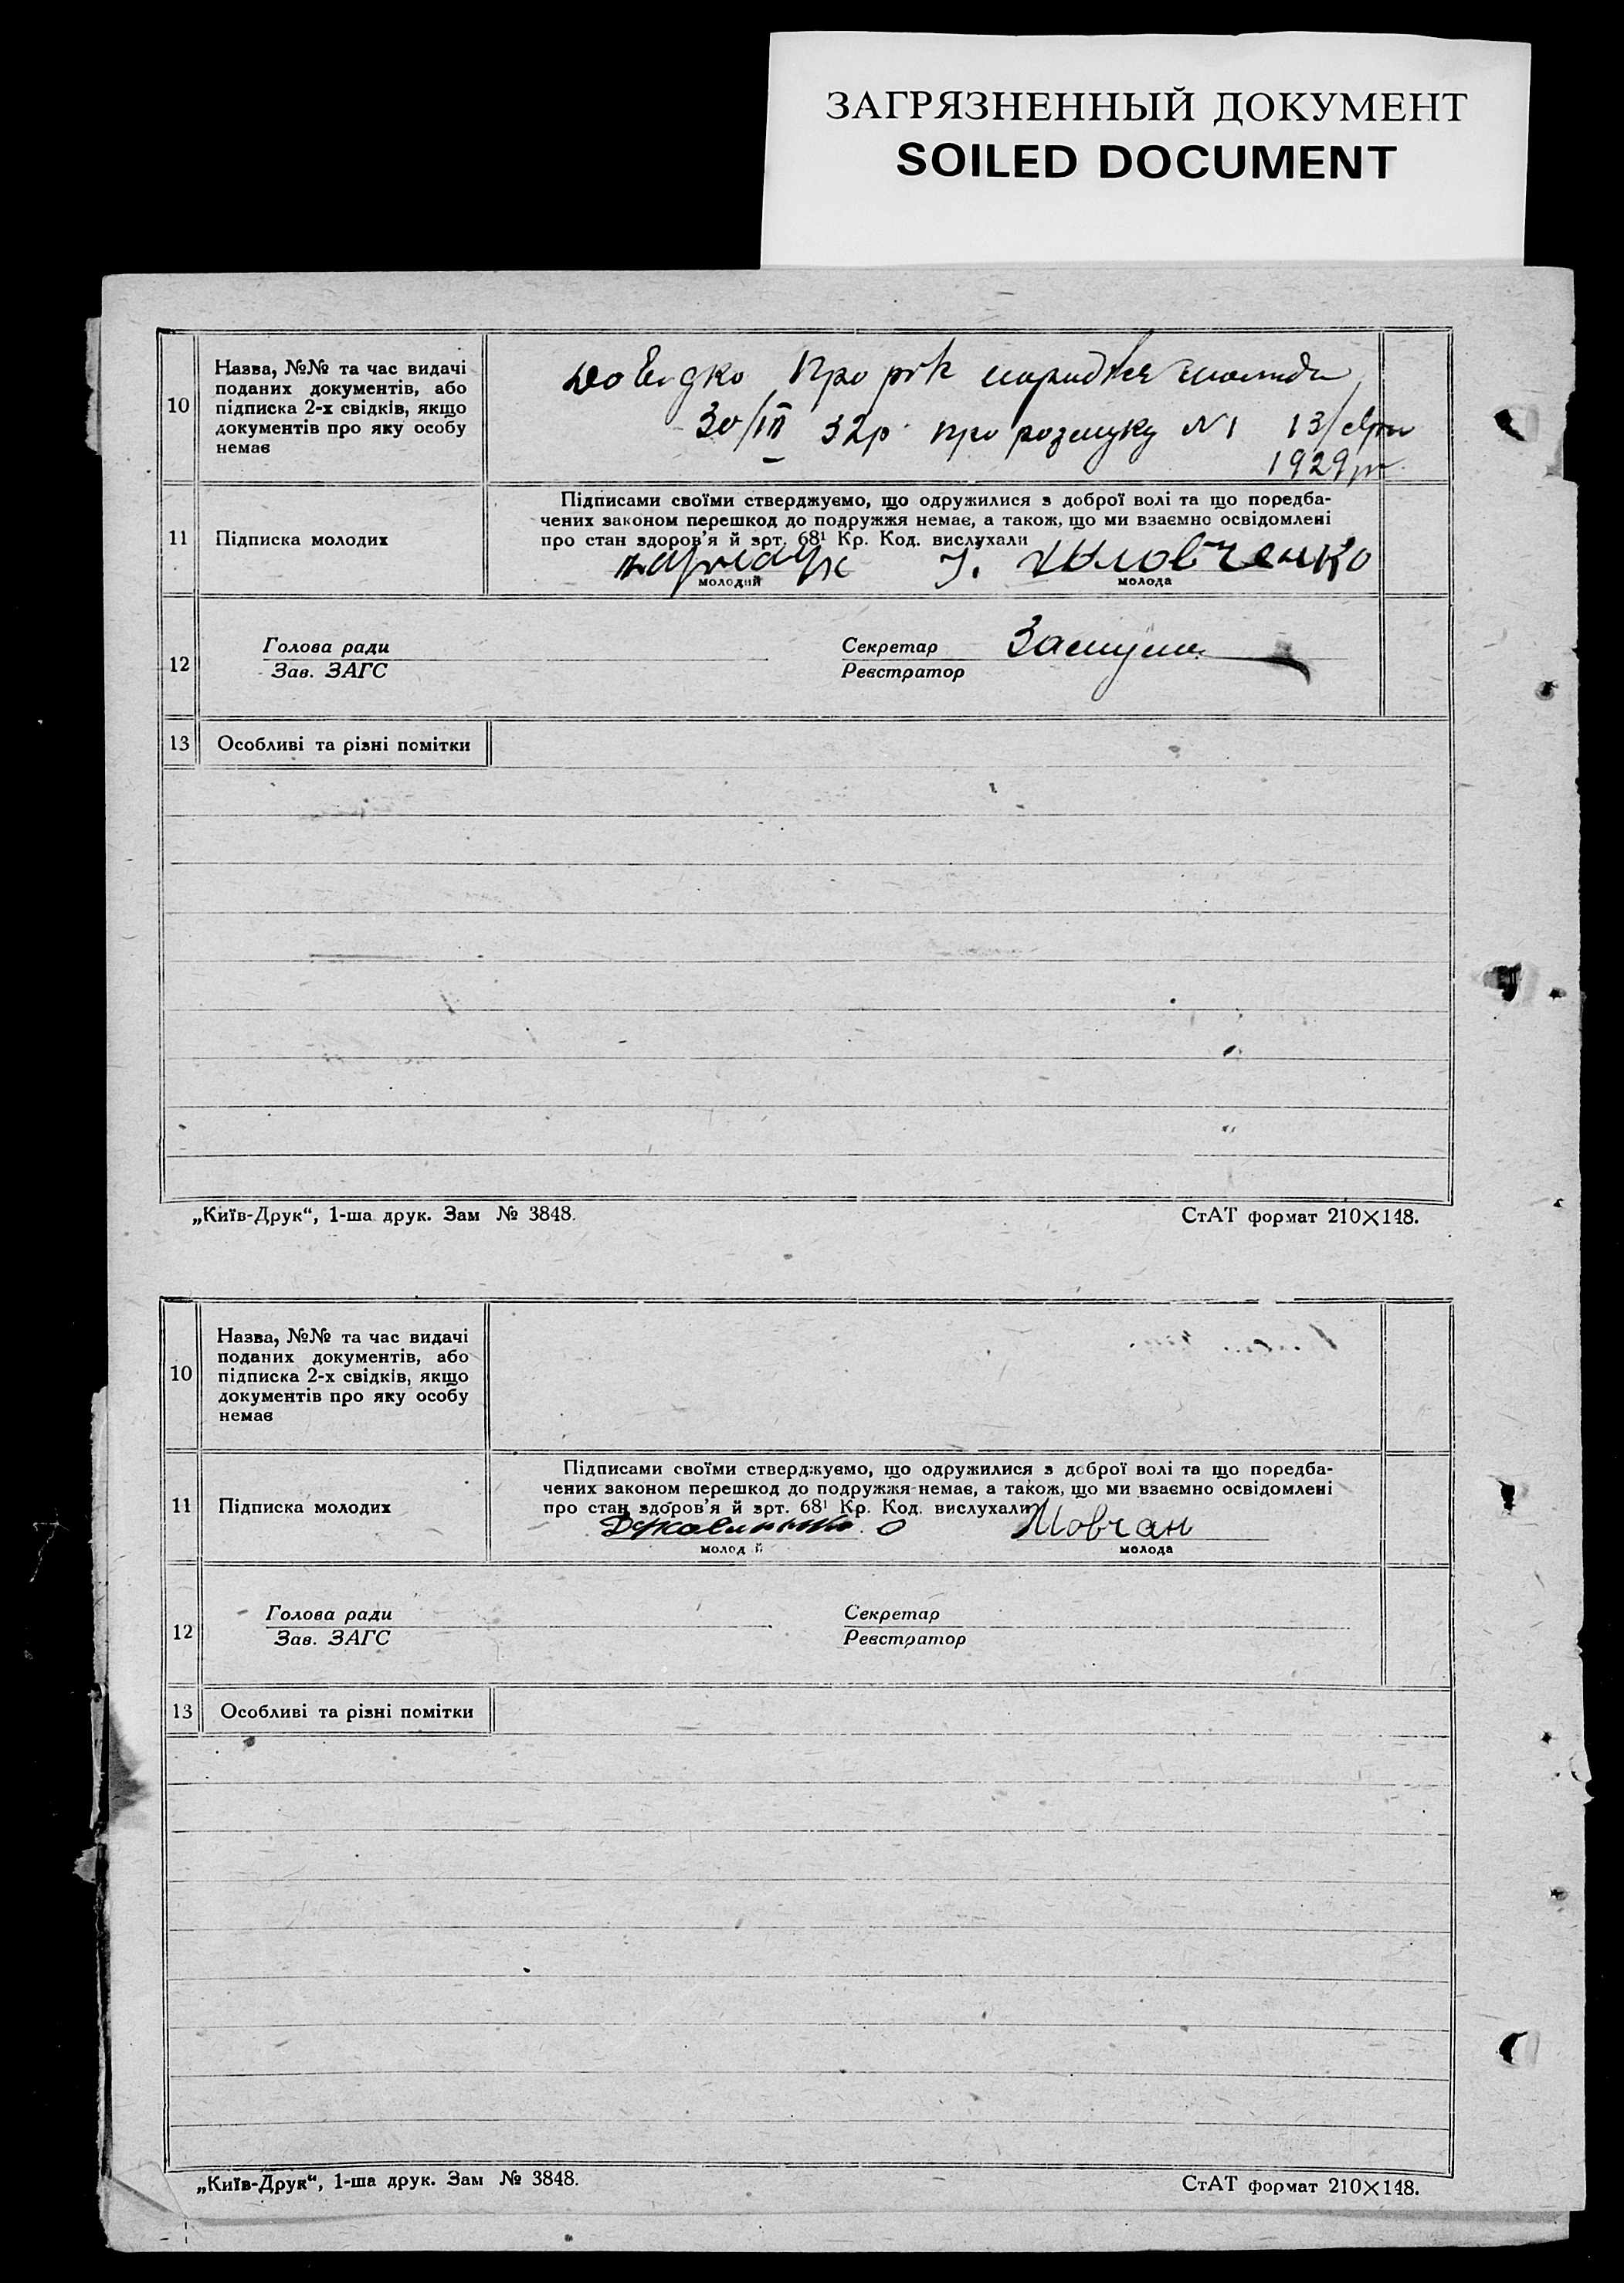 ЗАГРЯЗНЕННЫЙ ДОКУМЕНТ
SOILED DOCUMENT
10
Назва, №№ та час видачі
поданих документів, або
підписка 2-х свідків, якщо
документів про яку особу
немає
про рік
30/III 32р про розлуку N1 13/
1929р
11
Підписка молодих
Підписами своїми стверджуємо, що одружилися з доброї волі та що поредба-
чених законом перешкод до подружжя немає, а також, що ми взаємно освідомлені
про стан здоров'я й зрт. 68¹ Кр. Код. вислухали
молодий
молода
12
Голова ради
Зав. ЗАГС
Секретар
Реєстратор
13
Особливі та різні помітки
„Київ-Друк“, 1-ша друк. Зам № 3848.
СтАТ формат 210×148.
10
Назва, №№ та час видачі
поданих документів, або
підписка 2-х свідків, якщо
документів про яку особу
немає
11
Підписка молодих
Підписами своїми стверджуємо, що одружилися з доброї волі та що поредба-
чених законом перешкод до подружжя немає, а також, що ми взаємно освідомлені
про стан здоров'я й зрт. 68¹ Кр. Код. вислухали
Мовчан
молод й
молода
12
Голова ради
Зав. ЗАГС
Секретар
Реєстратор
13
Особливі та різні помітки
„Київ-Друк“, 1-ша друк. Зам № 3848.
СтАТ формат 210×148.